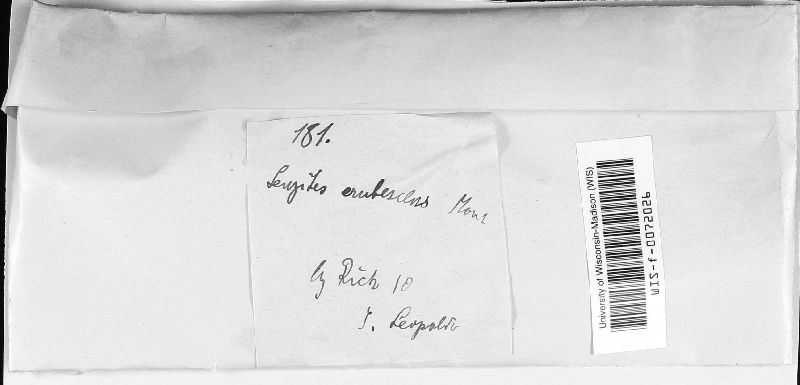 181.
Lenzites erubescens Mont
Rick 10
S. Leopoldo
University of Wisconsin-Madison (WIS)
WIS-f-0072026